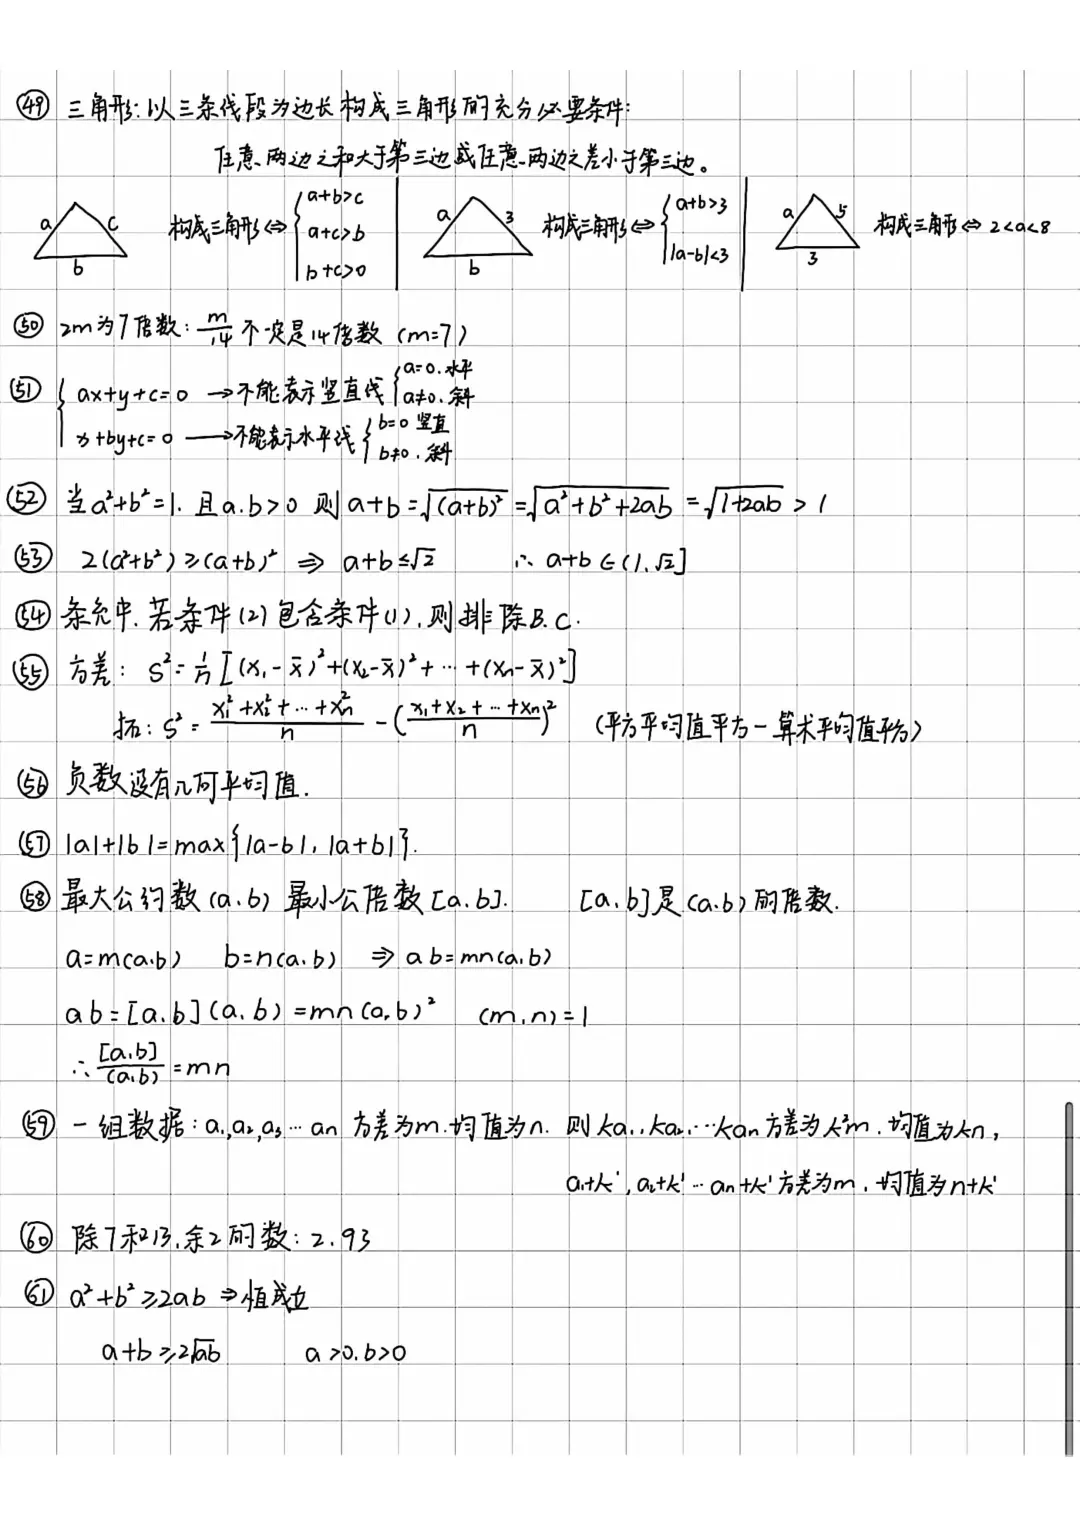 ㊾ 三角形:以三条线段为边长构成三角形的充分必要条件:
任意两边之和大于第三边或任意两边之差小于第三边。
a c b 构成三角形⇔{a+b>c a+c>b b+c>0 | a 3 b 构成三角形⇔{a+b>3 |a-b|<3 | a 5 3 构成三角形⇔2<a<8
㊿ 2m为7倍数: m/14 不一定是14倍数 (m=7)
(51) { ax+y+c=0 →不能表示竖直线 {a=0.水平 a≠0.斜
x+by+c=0 →不能表示水平线 {b=0 竖直 b≠0.斜
(52) 当a²+b²=1.且a.b>0 则 a+b=√(a+b)²=√a²+b²+2ab=√1+2ab>1
(53) 2(a²+b²)≥(a+b)² ⇒ a+b≤√2 ∴ a+b∈(1.√2]
(54) 条充中.若条件(2)包含条件(1),则排除B.C.
(55) 方差: S²=1/n[(x₁-x̄)²+(x₂-x̄)²+…+(xₙ-x̄)²]
拓:S²=x₁²+x₂²+…+xₙ²/n-(x₁+x₂+…+xₙ/n)² (平方平均值平方-算术平均值平方)
(56) 负数没有几何平均值.
(57) |a|+|b|=max{|a-b|,|a+b|}.
(58) 最大公约数(a.b) 最小公倍数[a.b]. [a.b]是(a.b)的倍数.
a=m(a.b) b=n(a.b) ⇒ab=mn(a.b)
ab=[a.b](a.b)=mn(a,b)² (m.n)=1
∴[a.b]/(a.b)=mn
(59) 一组数据:a₁,a₂,a₃…an 方差为m.均值为n. 则ka₁.ka₂.…kan方差为k²m.均值为kn,
a₁+k',a₂+k'…an+k'方差为m.均值为n+k'
(60) 除7和13.余2的数:2.93
(61) a²+b²≥2ab⇒恒成立
a+b≥2√ab a>0.b>0